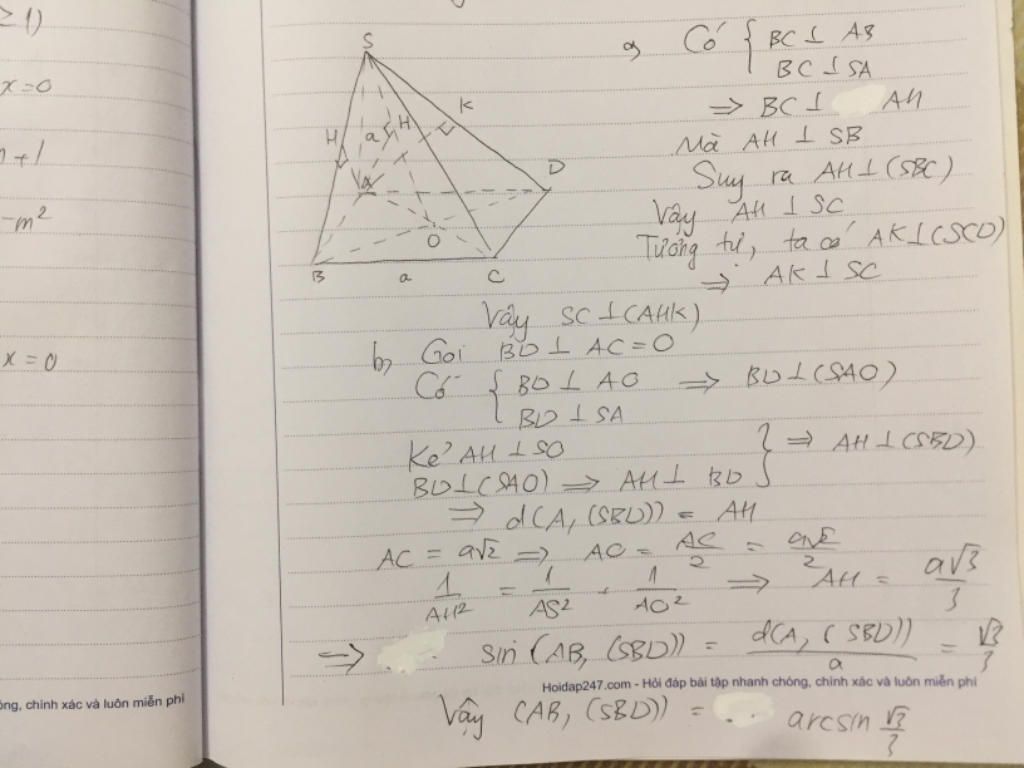 ≥ 1)
x = 0
n + 1
- m²
x = 0
ông, chính xác và luôn miễn phí
S
K
H
a
H
A
D
O
B
a
C
a, Có { BC ⊥ AB
BC ⊥ SA
⇒ BC ⊥ AH
Mà AH ⊥ SB
Suy ra AH ⊥ (SBC)
Vậy AH ⊥ SC
Tương tự, ta có AK ⊥ (SCD)
⇒ AK ⊥ SC
Vậy SC ⊥ (AHK)
b, Gọi BD ⊥ AC = O
Có { BD ⊥ AO ⇒ BD ⊥ (SAO)
BD ⊥ SA
Kẻ AH ⊥ SO
BD ⊥ (SAO) ⇒ AH ⊥ BD } ⇒ AH ⊥ (SBD)
⇒ d(A, (SBD)) = AH
AC = a√2 ⇒ AO = AC/2 = a√2/2
1/AH² = 1/AS² + 1/AO² ⇒ AH = a√3/3
⇒ sin (AB, (SBD)) = d(A, (SBD))/a = √3/3
Hoidap247.com - Hỏi đáp bài tập nhanh chóng, chính xác và luôn miễn phí
Vậy (AB, (SBD)) = arcsin √3/3